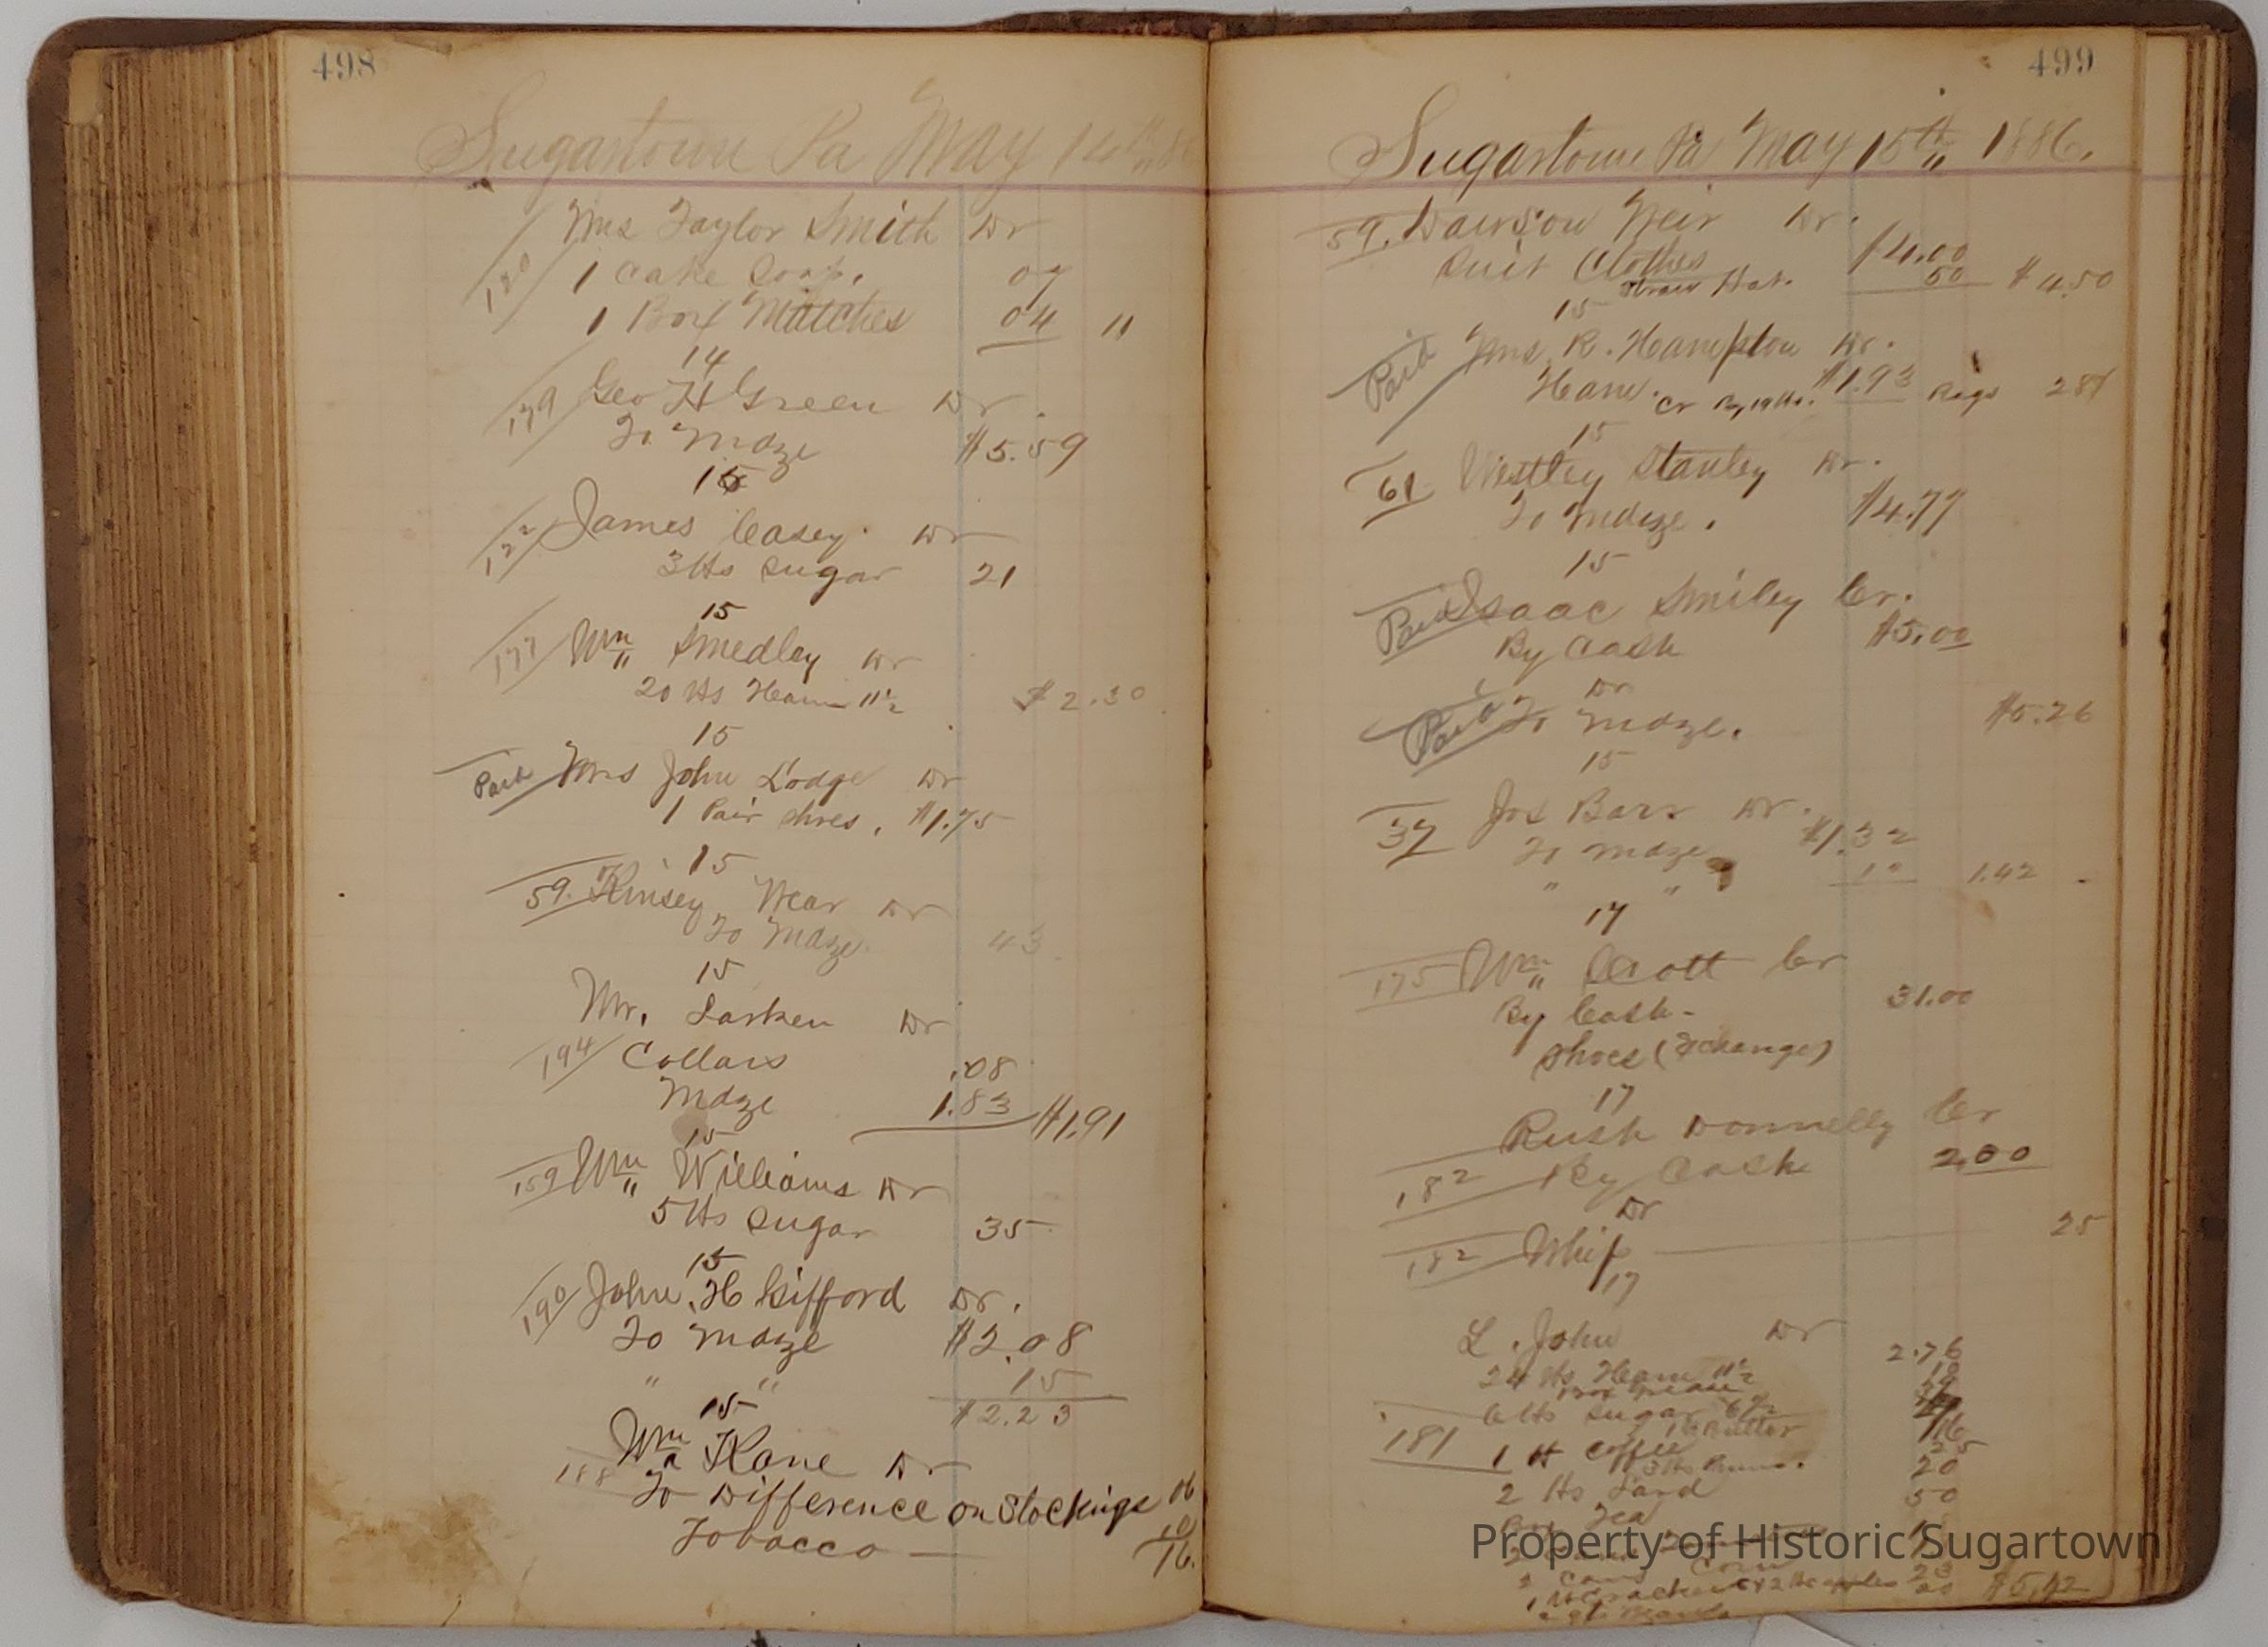 498
Sugartown Pa May 14th 86
120 Mrs Taylor Smith Dr
1 Cake Soap, 07
1 Box Matches 04 11
14
179 Geo H Green Dr.
To Mdze $5.59
15
122 James Casey Dr
3 lbs Sugar 21
15
177 Wm Smedley Dr
20 lbs Ham 11½ $2.30
15
Paid Mrs John Lodge Dr
1 Pair Shoes, $1.75
15
59. Kinsey Wear Dr
To Mdze. 43
15
Mr. Larken Dr
194 Collars .08
Mdze 1.83 $1.91
15
159 Wm Williams Dr
5 lbs Sugar 35
15
190 John H Gifford Dr.
To Mdze $2.08
" " 15
15 $2.23
Wm Kane Dr
188 To Difference on Stockings 06
Tobacco 10
16.
499
Sugartown Pa May 15th 1886.
59. Dawson Weir Dr.
Suit Clothes $4.00
Straw Hat. 50 $4.50
15
Paid Mrs. R. Hampton Dr.
Ham. Cr By 19 lbs. $1.93 Rags 28
15
61 Westley Stanley Dr.
To Mdze. $4.77
15
Paid Isaac Smiley Cr.
By Cash $5.00
Dr
Paid To Mdze. $5.26
15
37 Jos Barr Dr.
To Mdze $1.32
" " 10 1.42
17
175 Wm Scott Cr
By Cash - 31.00
Shoes (Exchange)
17
Rush Donnelly Cr
182 By Cash 2.00
Dr
182 Whip 25
17
L. John Dr
24 lbs Ham 11½ 2.76
6 lbs Sugar 6½
Butter 16
181 1 lb Coffee 25
3 lbs 20
2 lbs Lard 50
Tea
Property of Historic Sugartown
2 Cans Corn 23
$5.42